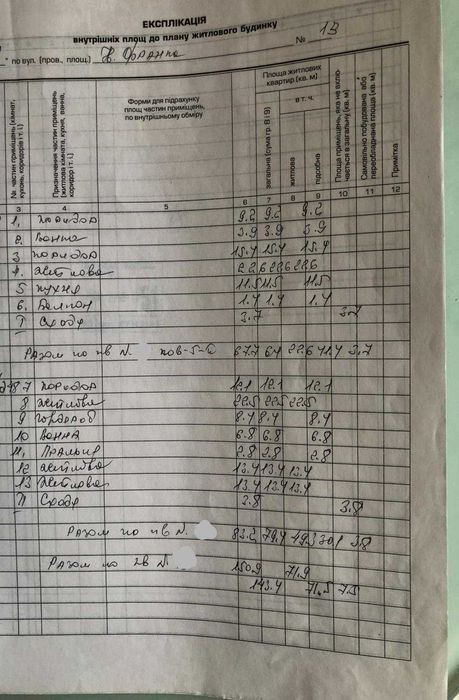 ЕКСПЛІКАЦІЯ
внутрішніх площ до плану житлового будинку
" по вул. (пров., площ.) І. Франка № 13
№ частин приміщень (кімнат, кухонь, коридорів і т. і.)
Призначення частин приміщень (житлова кімната, кухня, ванна, коридор і т. і.)
Форми для підрахунку площ частин приміщень, по внутрішньому обміру
Площа житлових квартир (кв. м)
загальна (сума гр. 8 і 9)
в т. ч.
житлова
підсобна
Площа приміщень, яка не включається в загальну (кв. м)
Самовільно побудована або переобладнана площа (кв. м)
Примітка
3 4 5 6 7 8 9 10 11 12
1. коридор 9.2 9.2 9.2
2. Ванна 3.9 3.9 3.9
3 коридор 15.4 15.4 15.4
4. житлова 22.6 22.6 22.6
5 кухня 11.5 11.5 11.5
6. Балкон 1.4 1.4 1.4
І Сходи 3.7 3.7
Разом по кв N. пов-5-0 67.7 64 22.6 41.4 3.7
7 коридор 12.1 12.1 12.1
8 житлова 22.5 22.5 22.5
9 гардероб 8.4 8.4 8.4
10 Ванна 6.8 6.8 6.8
11. Пральня 2.8 2.8 2.8
12 житлова 13.4 13.4 13.4
13 житлова 13.4 13.4 13.4
ІІ Сходи 3.8 3.8
Разом по кв N. 83.2 79.4 49.3 30.1 3.8
Разом по кв N. 150.9 71.9
143.4 71.5 7.5